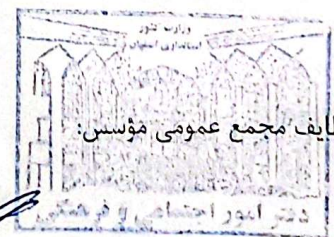 وزارت کشور
استانداری اصفهان
ظایف مجمع عمومی مؤسس:
دفتر امور اجتماعی و فرهنگی